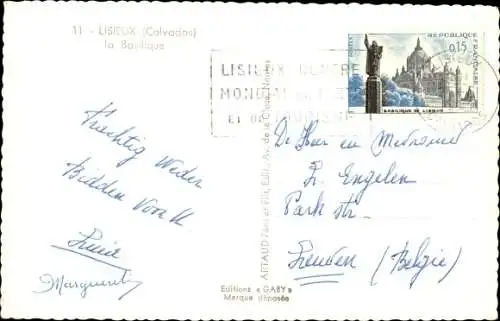 11 - LISIEUX (Calvados)
la Basilique
POSTES
REPUBLIQUE
FRANÇAISE
0,15
BASILIQUE DE LISIEUX
LISIEUX CENTRE
MONDIAL
ET DE
Prachtig Weder
Bidden voor U
Marguerite
ARTAUD Père et Fils, Edit.
Editions « GABY »
Marque déposée
De Heer en Mevrouw
L. Engelen
Park str.
Leuven (Belgie)